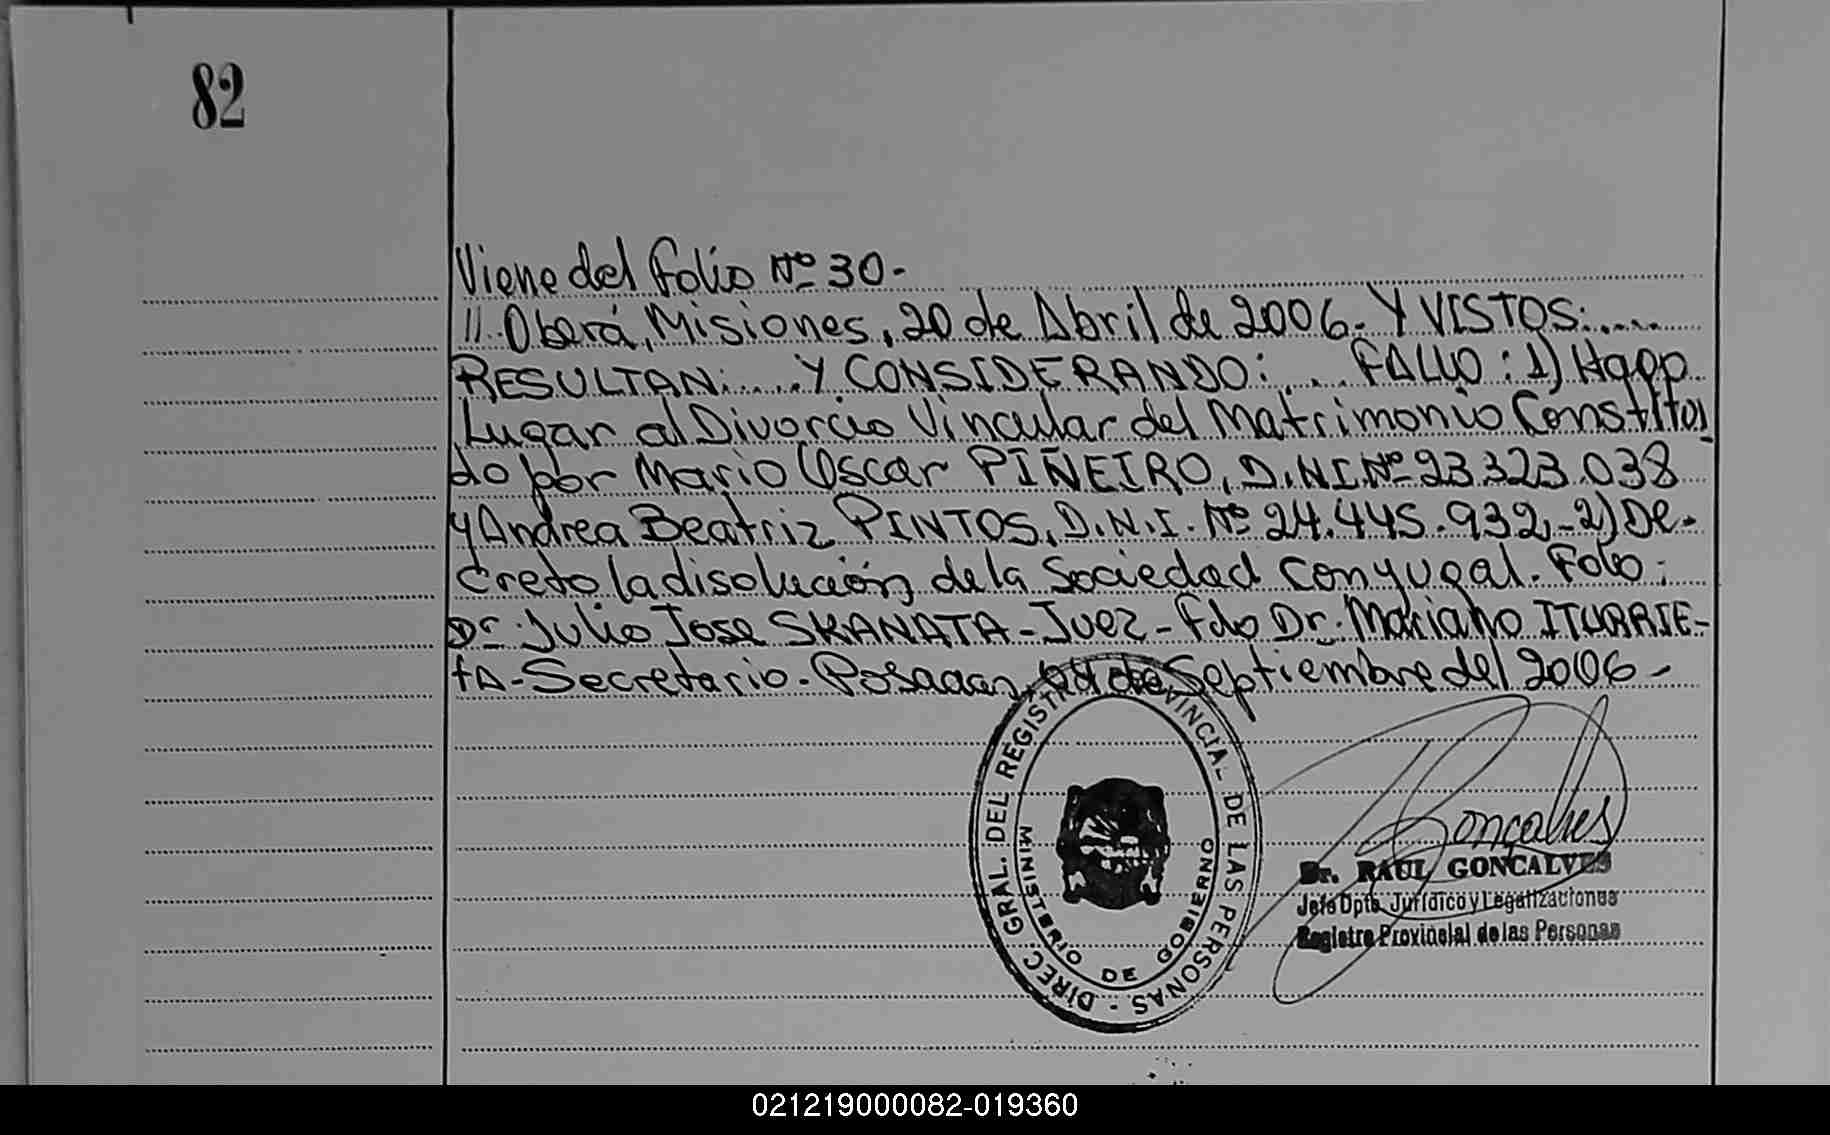 82
Viene del Folio Nº 30.-
//.. Oberá, Misiones, 20 de Abril de 2006.- Y VISTOS:.....
RESULTAN:.....Y CONSIDERANDO:.....FALLO: 1) Hago
Lugar al Divorcio Vincular del Matrimonio Constitui
do por Mario Oscar PIÑEIRO, D.N.I.Nº 23.323.038
y Andrea Beatriz PINTOS, D.N.I. Nº 24.445.932.-2) De-
creto la disolución de la Sociedad Conyugal. Fdo:
Dr. Julio Jose SKANATA - Juez - Fdo Dr. Mariano ITURRIE-
tA - Secretario. Posadas, de Septiembre del 2006 -
DIREC. GRAL. DEL REGISTRO PROVINCIAL DE LAS PERSONAS -
MINISTERIO DE GOBIERNO
Goncalves
Dr. RAUL GONCALVES
Jefe Dpto. Jurídico y Legalizaciones
Registro Provincial de las Personas
021219000082-019360